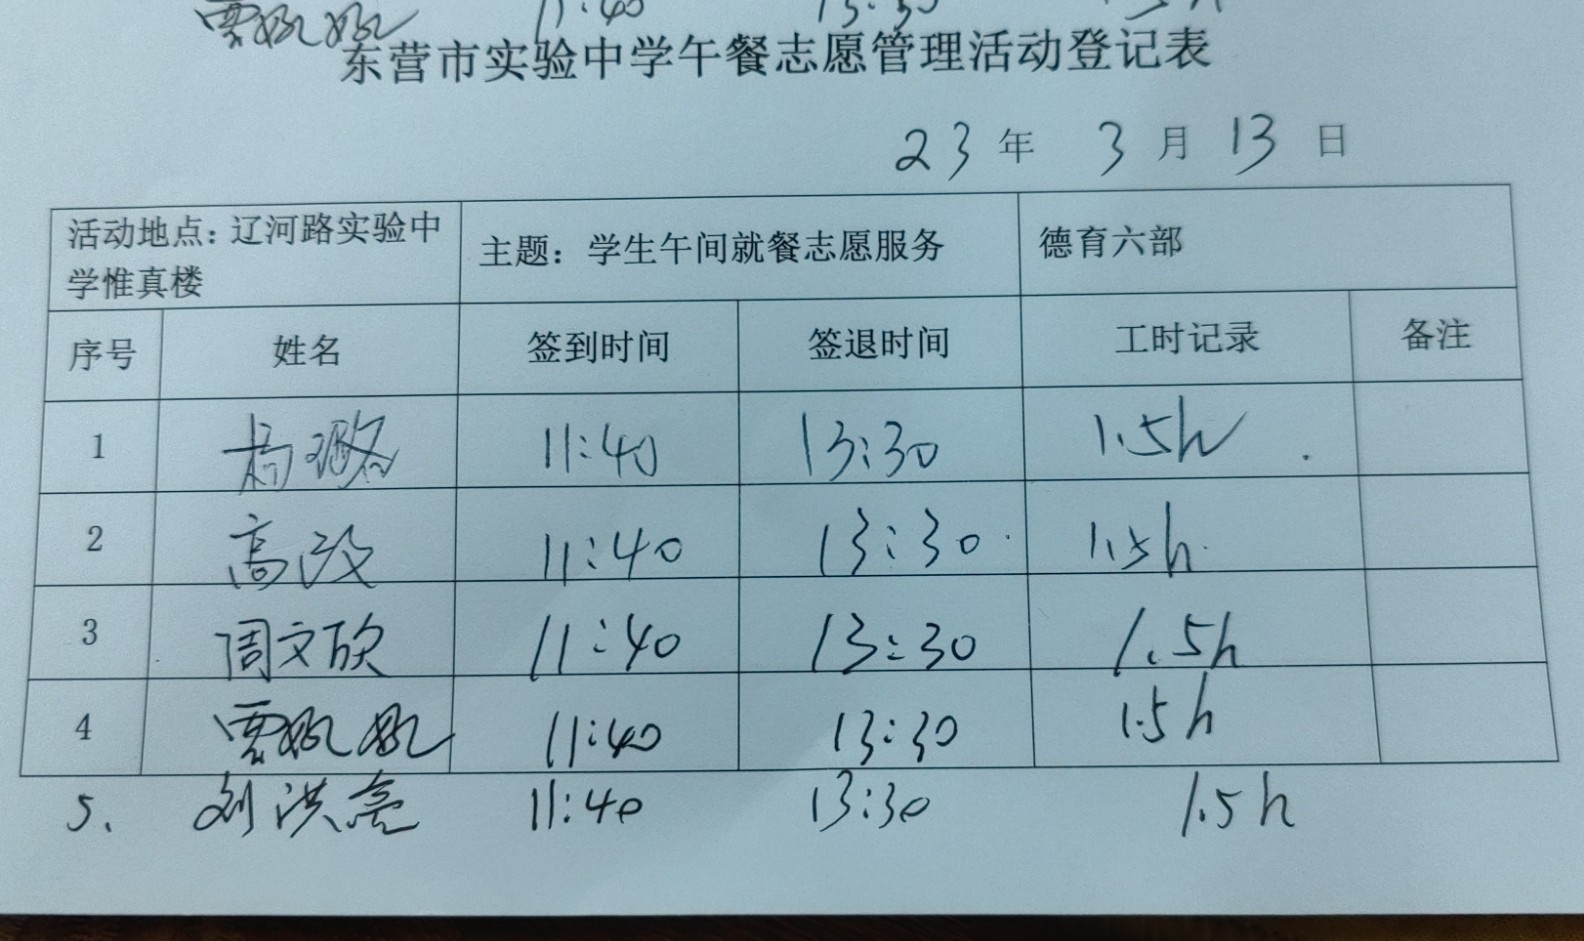 东营市实验中学午餐志愿管理活动登记表
23 年 3 月 13 日
活动地点：辽河路实验中学惟真楼 主题：学生午间就餐志愿服务 德育六部
序号 姓名 签到时间 签退时间 工时记录 备注
1 11:40 13:30 1.5h
2 高 11:40 13:30 1.5h
3 周文欣 11:40 13:30 1.5h
4 贾 11:40 13:30 1.5h
5、 刘洪亮 11:40 13:30 1.5h